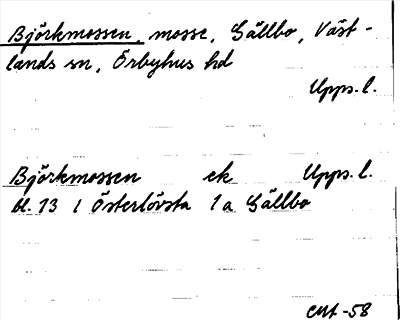 Björkmossen, mosse, Gällbo, Väst-
lands sn, Örbyhus hd
Upps. l.
Björkmossen ek Upps. l.
bl. 13 1 Österlövsta 1a Gällbo
-58